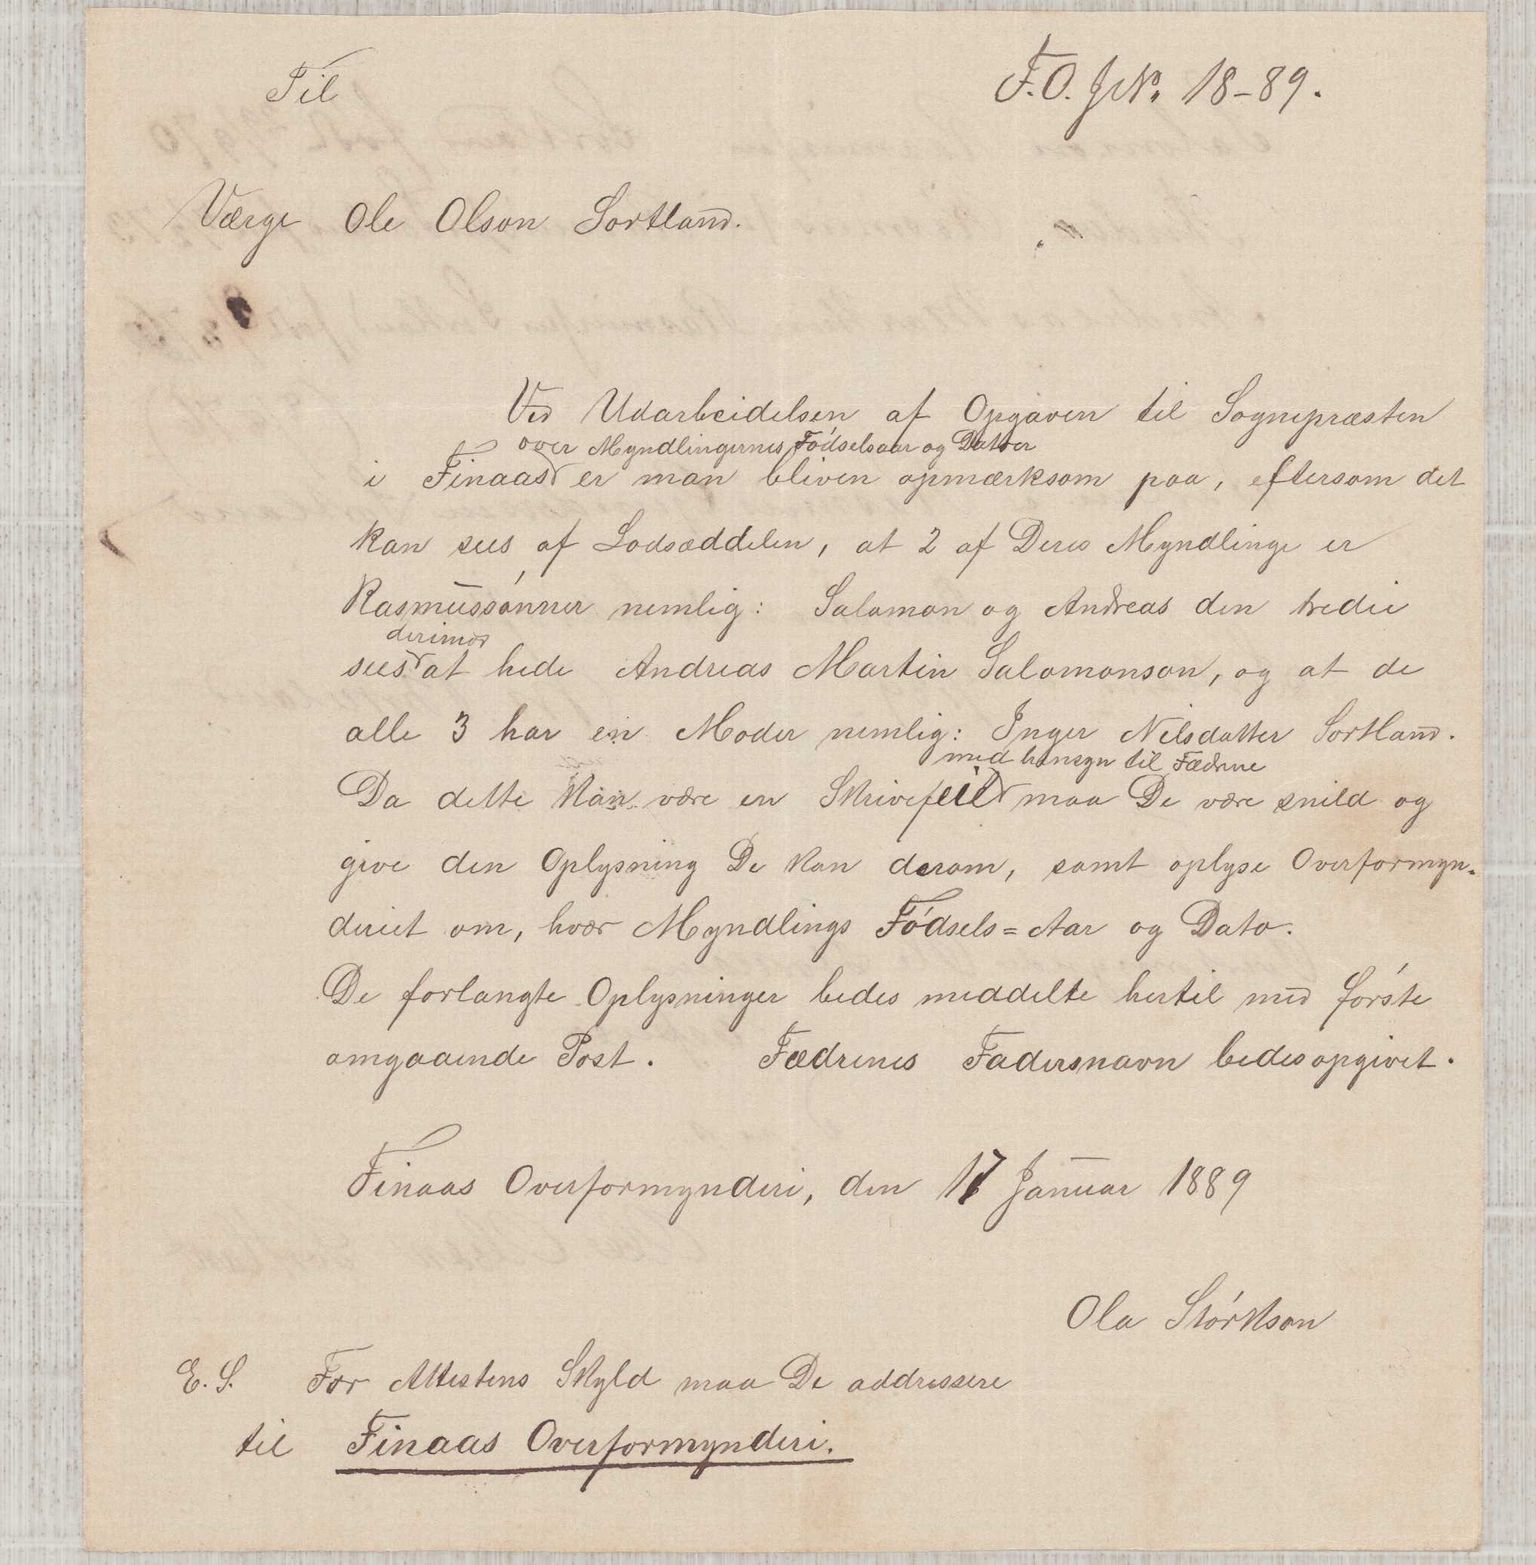 Til
F.O. JNo. 18-89.
Værge Ole Olson Sortland.
Ved Udarbeidelsen af Opgaven til Sognepræsten
over Myndlingernes Fódselsaar og Datoer
i Finaas er man bleven opmærksom paa, eftersom det
kan sees af Lodsæddelen, at 2 af Deres Myndlinge er
Rasmussónner nemlig: Salamon og Andreas den tredie
derimod
sees at hede Andreas Martin Salomonson, og at de
alle 3 har en Moder nemlig: Inger Nilsdatter Sortland.
med hensyn til Fædrene
Da dette kan være en Skrivefeil maa De være snild og
give den Oplysning De kan derom, samt oplyse Overformyn-
deriet om, hvær Myndlings Fódsels=Aar og Dato.
De forlangte Oplysninger bedes meddelte hertil med fórste
omgaaende Post. Fædrenes Fadersnavn bedes opgivet.
Finaas Overformynderi, den 17 Januar 1889
Ola Stórkson
E.S. For Attestens Skyld maa De addressere
til Finaas Overformynderi.